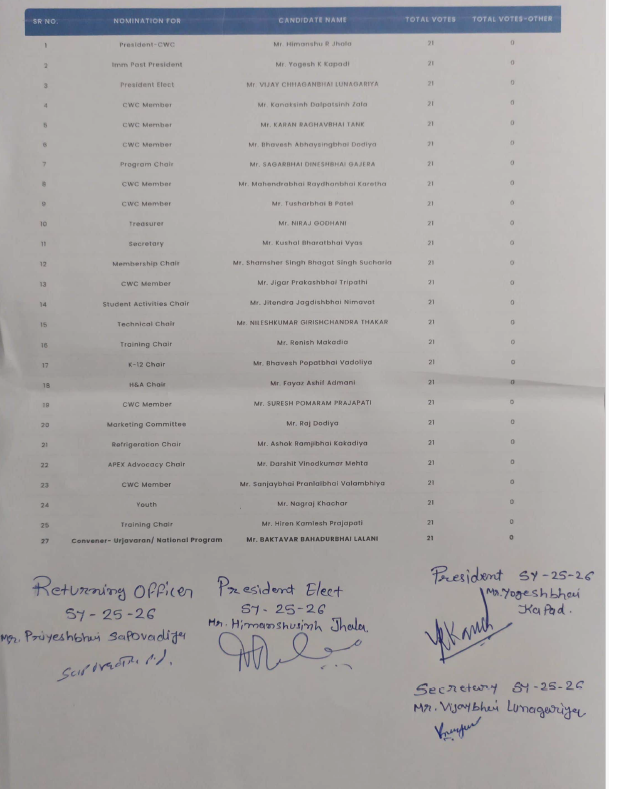 SR NO. NOMINATION FOR CANDIDATE NAME TOTAL VOTES TOTAL VOTES-OTHER
1 President-CWC Mr. Himanshu R Jhala 21 0
2 Imm Past President Mr. Yogesh K Kapadi 21 0
3 President Elect Mr. VIJAY CHHAGANBHAI LUNAGARIYA 21 0
4 CWC Member Mr. Kanaksinh Dalpatsinh Zala 21 0
5 CWC Member Mr. KARAN RAGHAVBHAI TANK 21 0
6 CWC Member Mr. Bhavesh Abhaysingbhai Dodiya 21 0
7 Program Chair Mr. SAGARBHAI DINESHBHAI GAJERA 21 0
8 CWC Member Mr. Mahendrabhai Raydhanbhai Karetha 21 0
9 CWC Member Mr. Tusharbhai B Patel 21 0
10 Treasurer Mr. NIRAJ GODHANI 21 0
11 Secretary Mr. Kushal Bharatbhai Vyas 21 0
12 Membership Chair Mr. Shamsher Singh Bhagat Singh Sucharia 21 0
13 CWC Member Mr. Jigar Prakashbhai Tripathi 21 0
14 Student Activities Chair Mr. Jitendra Jagdishbhai Nimavat 21 0
15 Technical Chair Mr. NILESHKUMAR GIRISHCHANDRA THAKAR 21 0
16 Training Chair Mr. Renish Makadia 21 0
17 K-12 Chair Mr. Bhavesh Popatbhai Vadoliya 21 0
18 H&A Chair Mr. Fayaz Ashif Admani 21 0
19 CWC Member Mr. SURESH POMARAM PRAJAPATI 21 0
20 Marketing Committee Mr. Raj Dodiya 21 0
21 Refrigeration Chair Mr. Ashok Ramjibhai Kakadiya 21 0
22 APEX Advocacy Chair Mr. Darshit Vinodkumar Mehta 21 0
23 CWC Member Mr. Sanjaybhai Pranlalbhai Valambhiya 21 0
24 Youth Mr. Nagraj Khachar 21 0
25 Training Chair Mr. Hiren Kamlesh Prajapati 21 0
27 Convener- Urjavaran/ National Program Mr. BAKTAVAR BAHADURBHAI LALANI 21 0
Returning Officer
SY-25-26
Mr. Priyeshbhai Sapovadiya
President Elect
SY-25-26
Mr. Himanshusinh Jhala.
President SY-25-26
Mr. Yogeshbhai
Kapad.
Secretary SY-25-26
Mr. Vijaybhai Lunagariya